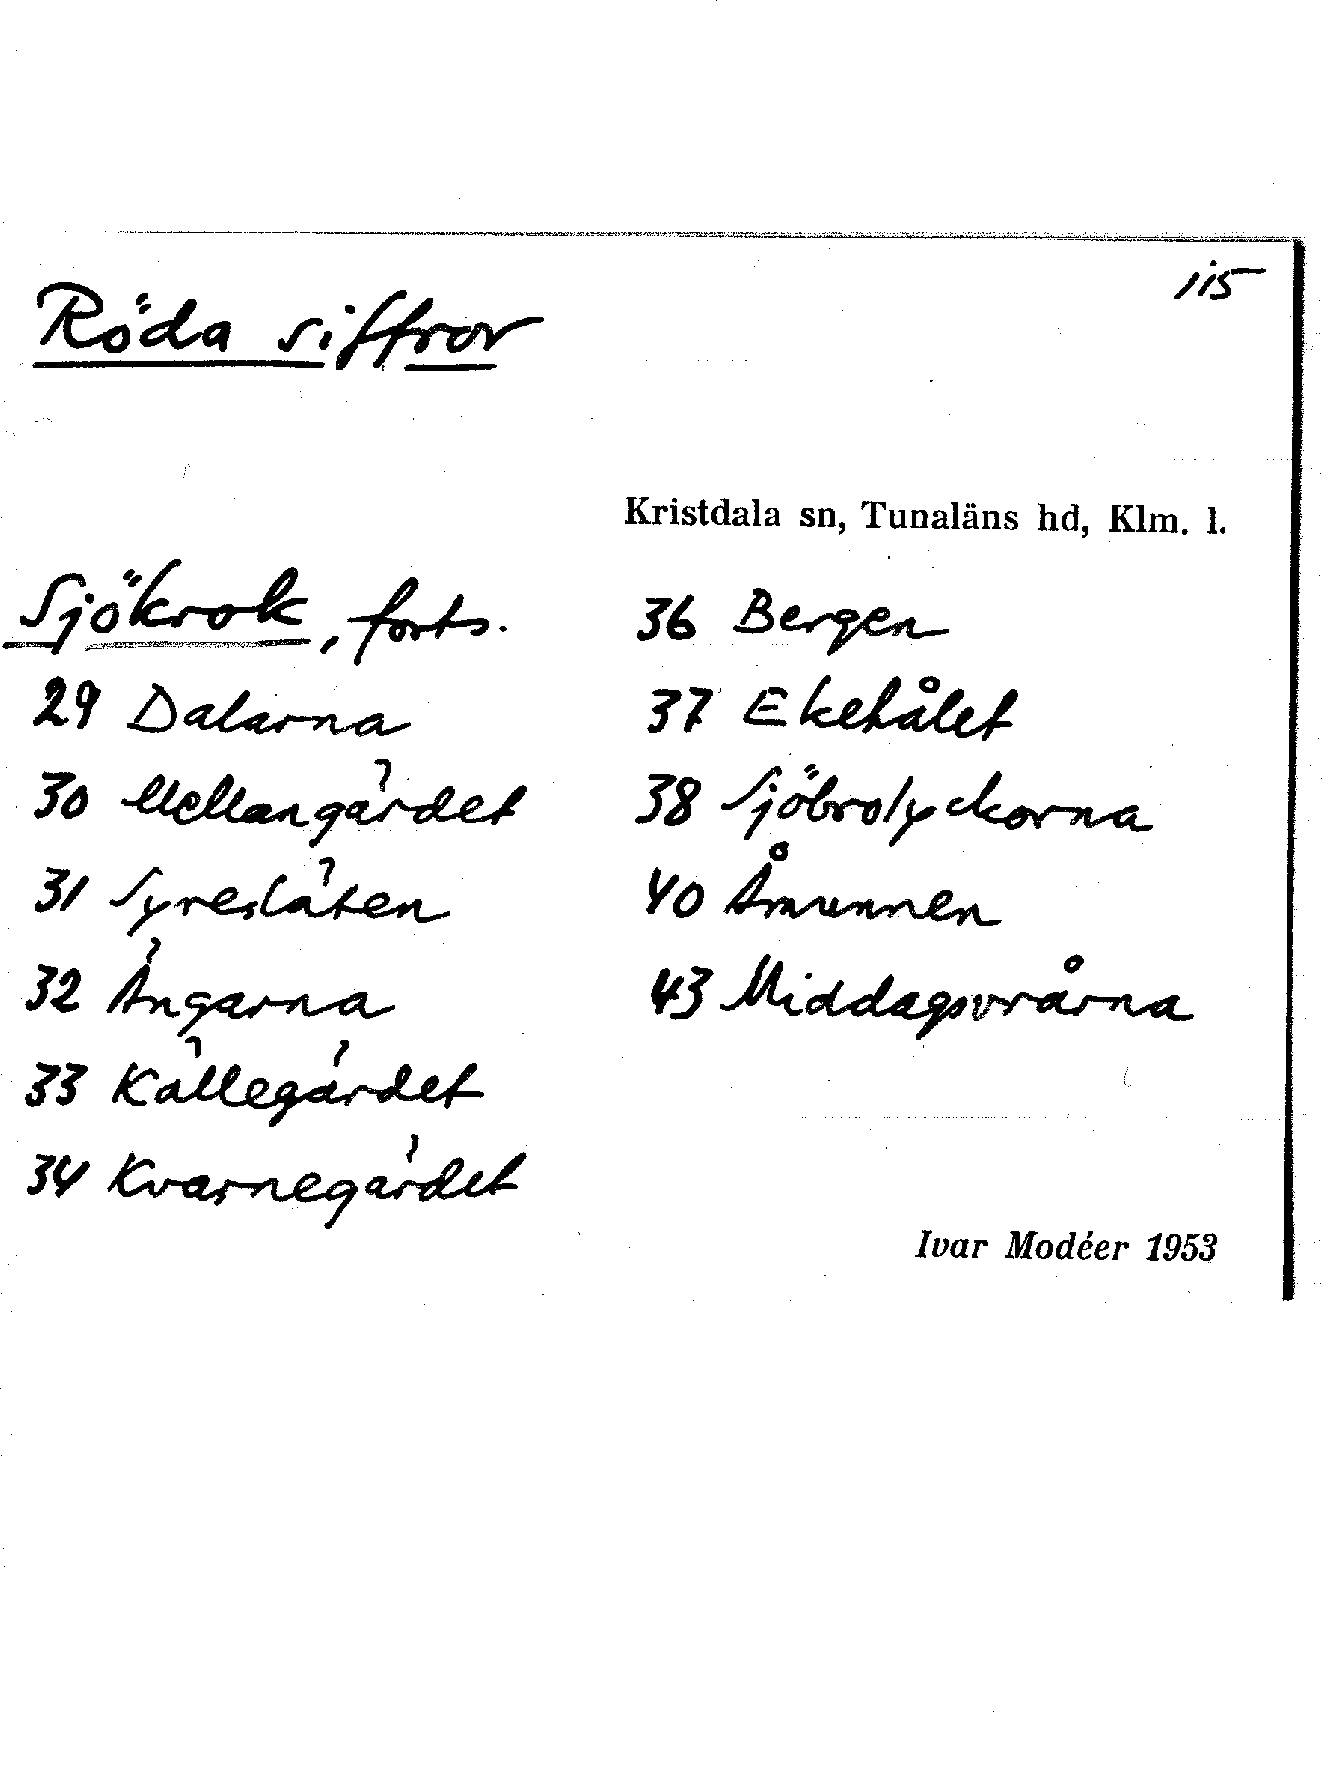 115
Röda siffror
Kristdala sn, Tunaläns hd, Klm. l.
Sjökrok, forts.
29 Dalarna
30 Mellangärdet
31 Syresläten
32 Ängarna
33 Källegärdet
34 Kvarnegärdet
36 Bergen
37 Ekehålet
38 Sjöbrolyckorna
40 Åmunnen
43 Middagsvrårna
Ivar Modéer 1953